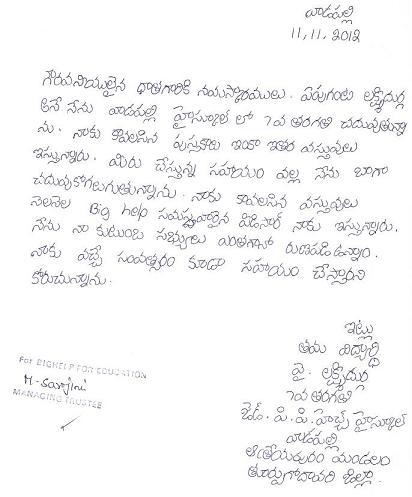 వాడపల్లి
11,11,2012
గౌరవనియులైన ధాతగారికి నమస్కారములు. ఏపుగంటి లక్ష్మిదుర్గ
అనే నేను వాడపల్లి హైస్కూల్ లో 7వ తరగతి చదువుతున్నా
ను. నాకు కావలసిన పుస్తకాలు ఇంకా ఇతర వస్తువులు
ఇస్తున్నారు. మిరు చేస్తున్న సహాయం వల్ల నేను బాగా
చదువుకోగలుగుతున్నాను. నాకు కావలసిన వస్తువులు
నెలనెల Big help సమస్థవారైన పిడిసార్ నాకు ఇస్తున్నారు.
నేను నా కుటుంబ సభ్యులు ఎంతగానో రుణపడి ఉన్నాం.
నాకు వచ్చే సంవత్సరం కూడా సహాయం చేస్తారని
కోరుచున్నాను.
ఇట్లు
తమ విద్యార్ధి
వై. లక్ష్మిదుర్గ
7వ తరగతి
జెడ్. పి. పి. హెచ్చ్ హైస్కూల్
వాడపల్లి
ఆత్రేయపురం మండలం
తూర్పుగోదావరి జిల్లా.
For BIGHELP FOR EDUCATION
M. Sarojini
MANAGING TRUSTEE